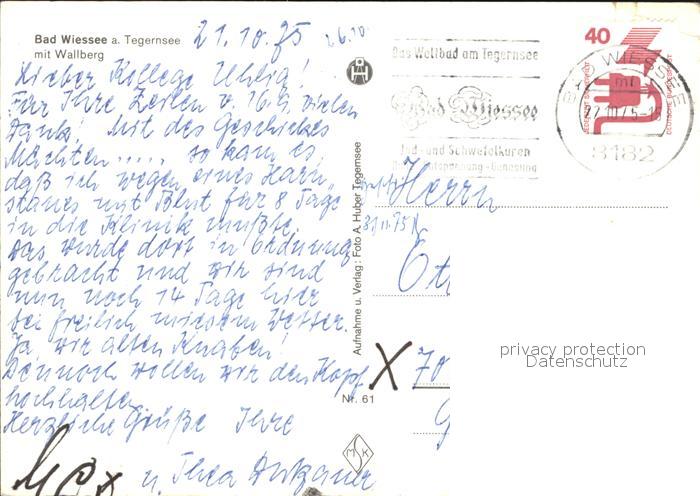 Bad Wiessee a. Tegernsee
mit Wallberg
21.10.75
26.10
Lieber Kollege Uhlig!
Für Ihre Zeilen v. 16.9. vielen
Dank! Mit des Geschickes
Mächten..... so kam es,
daß ich wegen eines Harn-
staues mit Blut für 8 Tage
in die Klinik mußte.
Das wurde dort in Ordnung
gebracht und wir sind
nun noch 14 Tage hier
bei freilich miesem Wetter.
Ja, wir alten Knaben!
Dennoch wollen wir den Kopf
hochhalten
Herzliche Grüße Ihre
u. Thea
Aufnahme u. Verlag: Foto A. Huber Tegernsee
Nr. 61
M K
Das Weltbad am Tegernsee
Bad Wiessee
Jod- und Schwefelkuren
Entspannung - Genesung
40
DEUTSCHE BUNDESPOST
BAD WIESSEE
8182
Herrn
31.11.75
X 70
privacy protection
Datenschutz